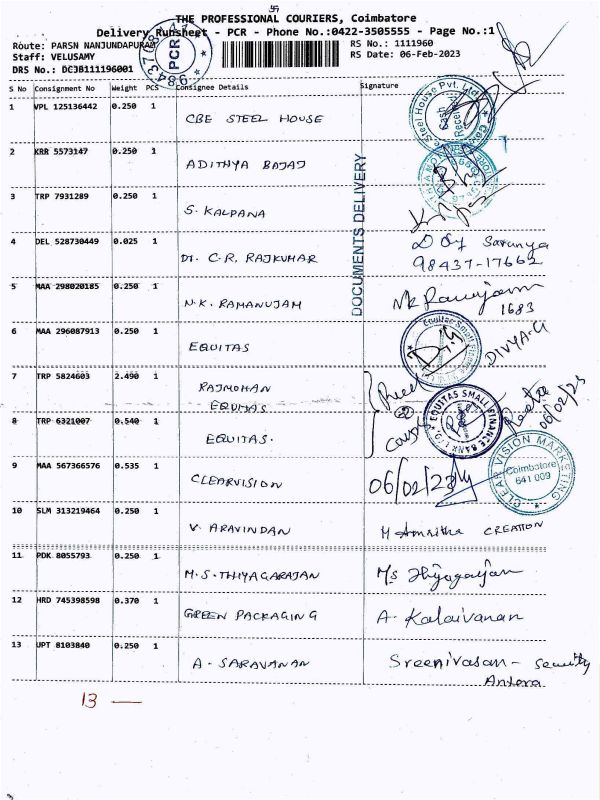 卐
THE PROFESSIONAL COURIERS, Coimbatore
Delivery Runsheet - PCR - Phone No.:0422-3505555 - Page No.:1
Route: PARSN NANJUNDAPURAM
RS No.: 1111960
Staff: VELUSAMY
RS Date: 06-Feb-2023
DRS No.: DCJB111196001
PCR
S No Consignment No Weight PCS Consignee Details Signature
1 VPL 125136442 0.250 1 CBE STEEL HOUSE
Steel House Pvt. Ltd
Cash
2 KRR 5573147 0.250 1 ADITHYA BAJAJ
DOCUMENTS DELIVERY
3 TRP 7931289 0.250 1 S. KALPANA
4 DEL 528730449 0.025 1 Dr. C.R. RAJKUMAR Saranya
98437-17662
5 MAA 298020185 0.250 1 N.K. RAMANUJAM NK Ramanujam
1683
6 MAA 296087913 0.250 1 EQUITAS DIVYA-G
Equitas Small
7 TRP 5824603 2.490 1 RAJMOHAN
EQUITAS
8 TRP 6321007 0.540 1 EQUITAS.
EQUITAS SMALL FINANCE BANK LTD
06/02/23
9 MAA 567366576 0.535 1 CLEARVISION 06/02/23
CLEAR VISION MARKETING
Coimbatore
641 009
10 SLM 313219464 0.250 1 V. ARAVINDAN M Amritha CREATION
11 PDK 8055793 0.250 1 M.S. THIYAGARAJAN M/s Thiyagarajan
12 HRD 745398598 0.370 1 GREEN PACKAGING A. Kalaivanan
13 UPT 8103840 0.250 1 A. SARAVANAN Sreenivasan - Security
Antora
13 —